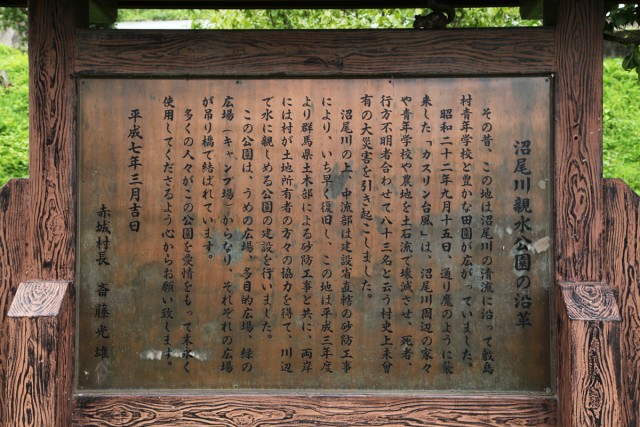 沼尾川親水公園の沿革
その昔、この地は沼尾川の清流に沿って敷島
村青年学校と豊かな田園が広がっていました。
昭和二十二年九月十五日、通り魔のように襲
来した「カスリン台風」は、沼尾川周辺の家々
や青年学校や農地を土石流で壊滅させ、死者、
行方不明者合わせて八十三名と云う村史上未曾
有の大災害を引き起こしました。
沼尾川の上・中流部は建設省直轄の砂防工事
により、いち早く復旧し、この地は平成三年度
より群馬県土木部による砂防工事と共に、両岸
には村が土地所有者の方々の協力を得て、川辺
で水に親しめる公園の建設を行いました。
この公園は、うめの広場、多目的広場、緑の
広場（キャンプ場）からなり、それぞれの広場
が吊り橋で結ばれています。
多くの人々がこの公園を愛情をもって末永く
使用してくださるよう心からお願い致します。
平成七年三月吉日
赤城村長 斎藤光雄